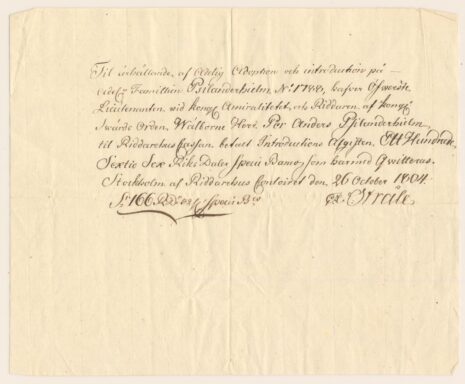 Til erhållande af Adelig Adoption och introduction på
Adel: Familien Psilanderhielm N:o 1748, hafver Öfverste
Lieutenanten vid kongl Amiralitetet, och Riddaren af kongl
Swärds Orden, Walborne Herr Per Anders Psilanderhielm,
til Riddarehus Cassan betalt Introductions Afgiften, Ett Hundrade
Sextio Sex Riks Daler Specie Banco, som harmed qvitteras.
Stockholm af Riddarehus Contoiret den 26 October 1804.
166 Specie B:co Stråle